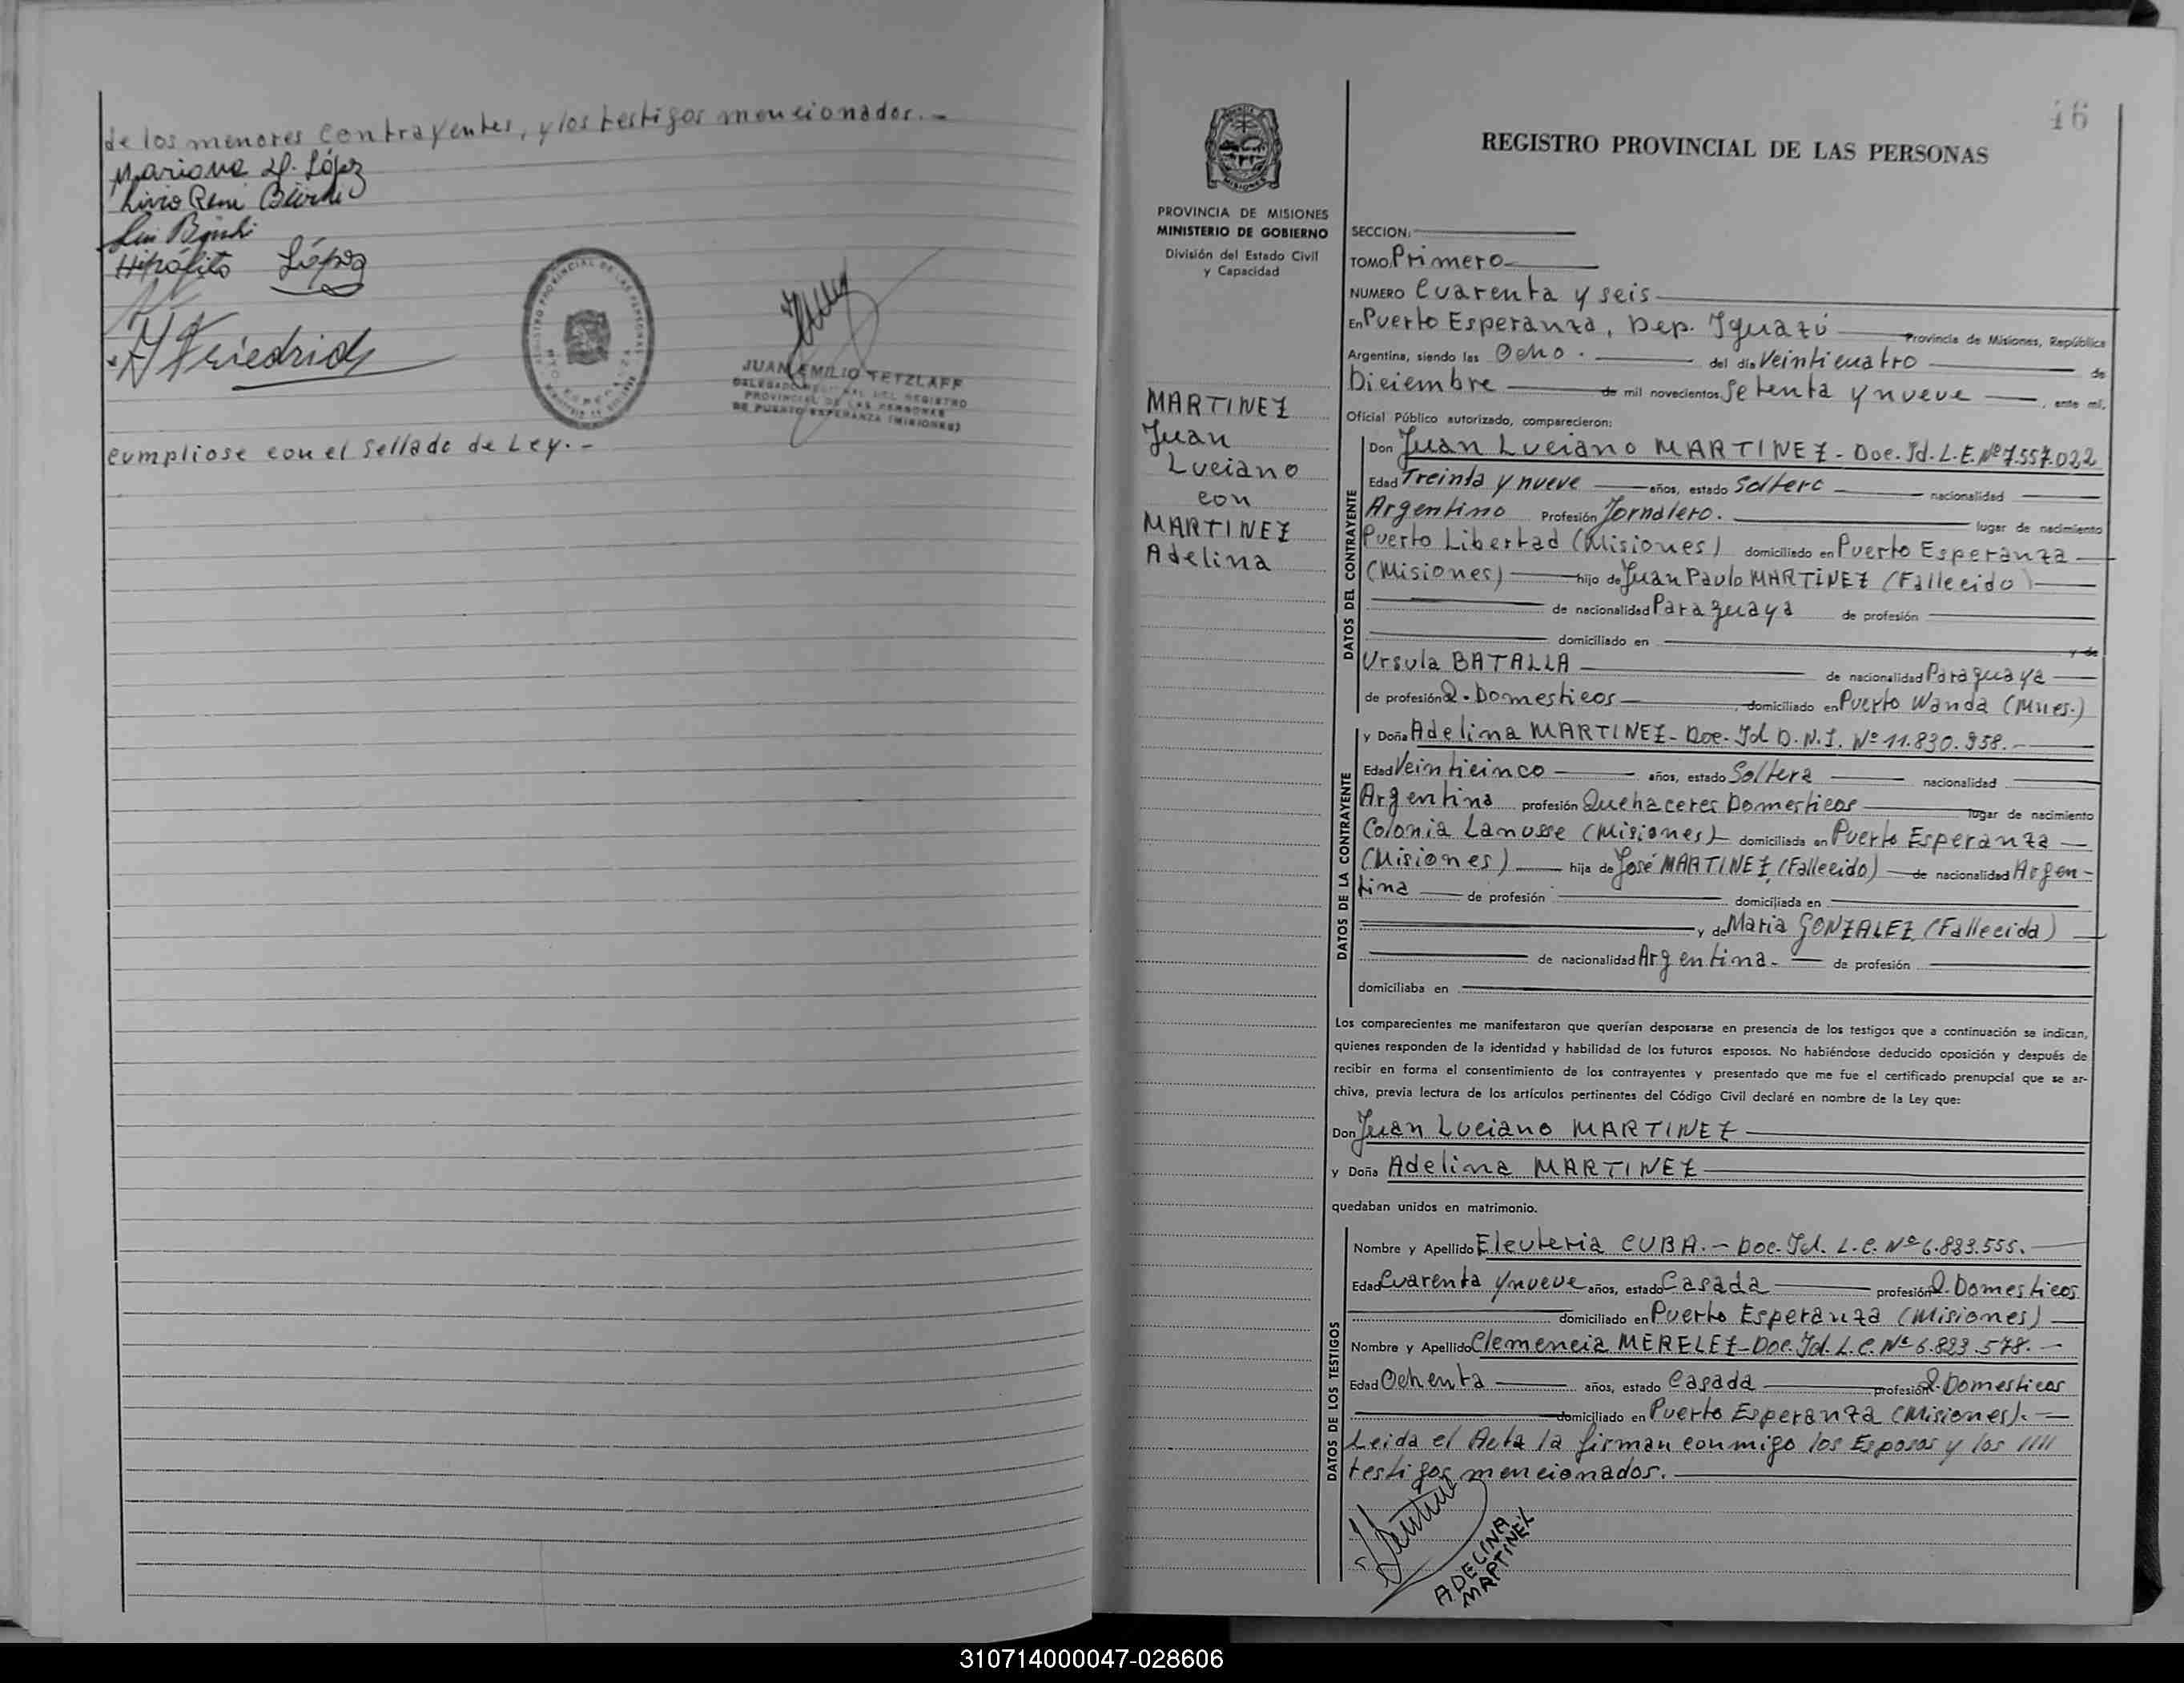 de los menores contrayentes, y los testigos mencionados.-
Mariana
López
Livio
Hipólito López
Friedrich
REGISTRO PROVINCIAL DE LAS PERSONAS
JUAN EMILIO TETZLAFF
DELEGADO REGIONAL DEL REGISTRO
PROVINCIAL DE LAS PERSONAS
DE PUERTO ESPERANZA (MISIONES)
cumpliose con el sellado de Ley.-
46
MISIONES
PROVINCIA DE MISIONES
MINISTERIO DE GOBIERNO
División del Estado Civil
y Capacidad
MARTINEZ
Juan
Luciano
con
MARTINEZ
Adelina
REGISTRO PROVINCIAL DE LAS PERSONAS
SECCION:
TOMO Primero
NUMERO Cuarenta y seis
En Puerto Esperanza, Dep. Iguazú Provincia de Misiones, República
Argentina, siendo las Ocho. del día Veinticuatro de
Diciembre de mil novecientos Setenta y nueve, ante mí,
Oficial Público autorizado, comparecieron:
DATOS DEL CONTRAYENTE
Don Juan Luciano MARTINEZ - Doc. Id. L.E. Nº 7.557.022
Edad Treinta y nueve años, estado Soltero nacionalidad
Argentino Profesión Jornalero. lugar de nacimiento
Puerto Libertad (Misiones) domiciliado en Puerto Esperanza
(Misiones) hijo de Juan Paulo MARTINEZ (Fallecido)
de nacionalidad Paraguaya de profesión
domiciliado en y de
Ursula BATALLA de nacionalidad Paraguaya
de profesión Q. Domesticos, domiciliado en Puerto Wanda (Mnes.)
DATOS DE LA CONTRAYENTE
y Doña Adelina MARTINEZ - Doc. Id D.N.I. Nº 11.830.958.-
Edad Veinticinco años, estado Soltera nacionalidad
Argentina profesión Quehaceres Domesticos lugar de nacimiento
Colonia Lanusse (Misiones) domiciliada en Puerto Esperanza
(Misiones) hija de José MARTINEZ (Fallecido) de nacionalidad Argen-
tina de profesión domiciliada en
y de Maria GONZALEZ (Fallecida)
de nacionalidad Argentina.- de profesión
domiciliaba en
Los comparecientes me manifestaron que querían desposarse en presencia de los testigos que a continuación se indican,
quienes responden de la identidad y habilidad de los futuros esposos. No habiéndose deducido oposición y después de
recibir en forma el consentimiento de los contrayentes y presentado que me fue el certificado prenupcial que se ar-
chiva, previa lectura de los artículos pertinentes del Código Civil declaré en nombre de la Ley que:
Don Juan Luciano MARTINEZ
y Doña Adelina MARTINEZ
quedaban unidos en matrimonio.
DATOS DE LOS TESTIGOS
Nombre y Apellido Eleuteria CUBA.- Doc. Id. L.C. Nº 6.823.555.
Edad Cuarenta y nueve años, estado Casada profesión Q. Domesticos
domiciliado en Puerto Esperanza (Misiones)
Nombre y Apellido Clemencia MERELEZ - Doc. Id. L.C. Nº 6.823.578.-
Edad Ochenta años, estado Casada profesión Q. Domesticos
domiciliado en Puerto Esperanza (Misiones).-
Leida el Acta la firman conmigo los Esposos y los ////
testigos mencionados.
ADELINA
MARTINEZ
310714000047-028606